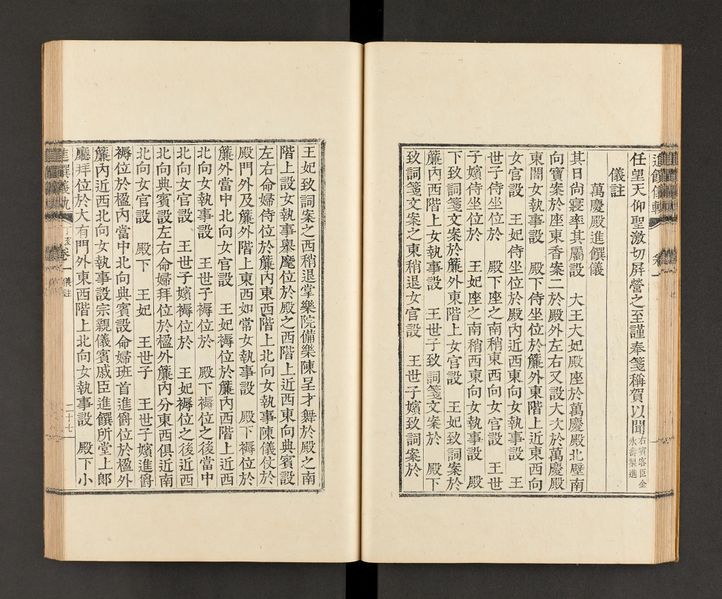 進饌儀軌 卷一
任望天仰聖激切屛營之至謹奉箋稱賀以聞右賓客臣金永壽製進
儀註
萬慶殿進饌儀
其日尙寢率其屬設 大王大妃殿座於萬慶殿北壁南
向寶案於座東香案二於殿外左右又設大次於萬慶殿
東閤女執事設 殿下侍坐位於簾外東階上近東西向
女官設 王妃侍坐位於殿內近西東向女執事設 王
世子侍坐位於 殿下座之南稍東西向女官設 王世
子嬪侍坐位於 王妃座之南稍西東向女執事設 殿
下致詞箋文案於簾外東階上女官設 王妃致詞箋文案於
簾內西階上女執事設 王世子致詞箋文案於 殿下
致詞箋文案之東稍退女官設 王世子嬪致詞案於
王妃致詞案之西稍退掌樂院備樂陳呈才舞於殿之南
階上設女執事擧麾位於殿之西階上近西東向典賓設
左右命婦侍位於簾內東西階上北向女執事陳儀仗於
殿門外及簾外階上東西如常女執事設 殿下褥位於
簾外當中北向女官設 王妃褥位於簾內西階上近西
北向女執事設 王世子褥位於 殿下褥位之後當中
北向女官設 王世子嬪褥位於 王妃褥位之後近西
北向典賓設左右命婦拜位於楹外簾內分東西俱近南
北向女官設 殿下 王妃 王世子 王世子嬪進爵
褥位於楹內當中北向典賓設命婦班首進爵位於楹外
簾內近西北向女執事設宗親儀賓戚臣進饌所堂上郞
廳拜位於大有門外東西階上北向女執事設 殿下小
進饌儀軌 卷一 儀註 二十七